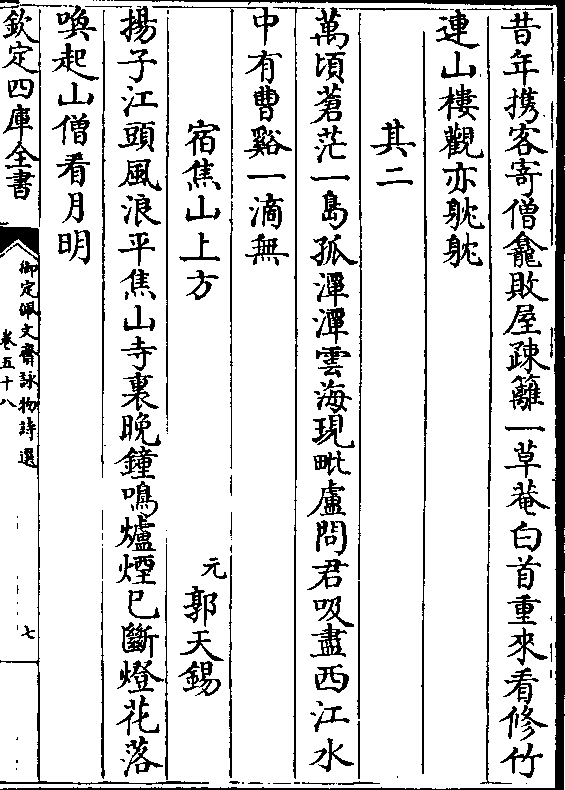 昔年攜客寄僧龕敗屋疎籬一草菴白首重來看修竹
連山樓觀亦躭躭
其二
萬頃蒼茫一島孤潭潭雲海現毗盧問君吸盡西江水
中有曹谿一滴無
宿焦山上方
元 郭天錫
揚子江頭風浪平焦山寺裏晚鐘鳴爐煙已斷燈花落
喚起山僧看月明
欽定四庫全書
御定佩文齋詠物詩選
卷五十八
七